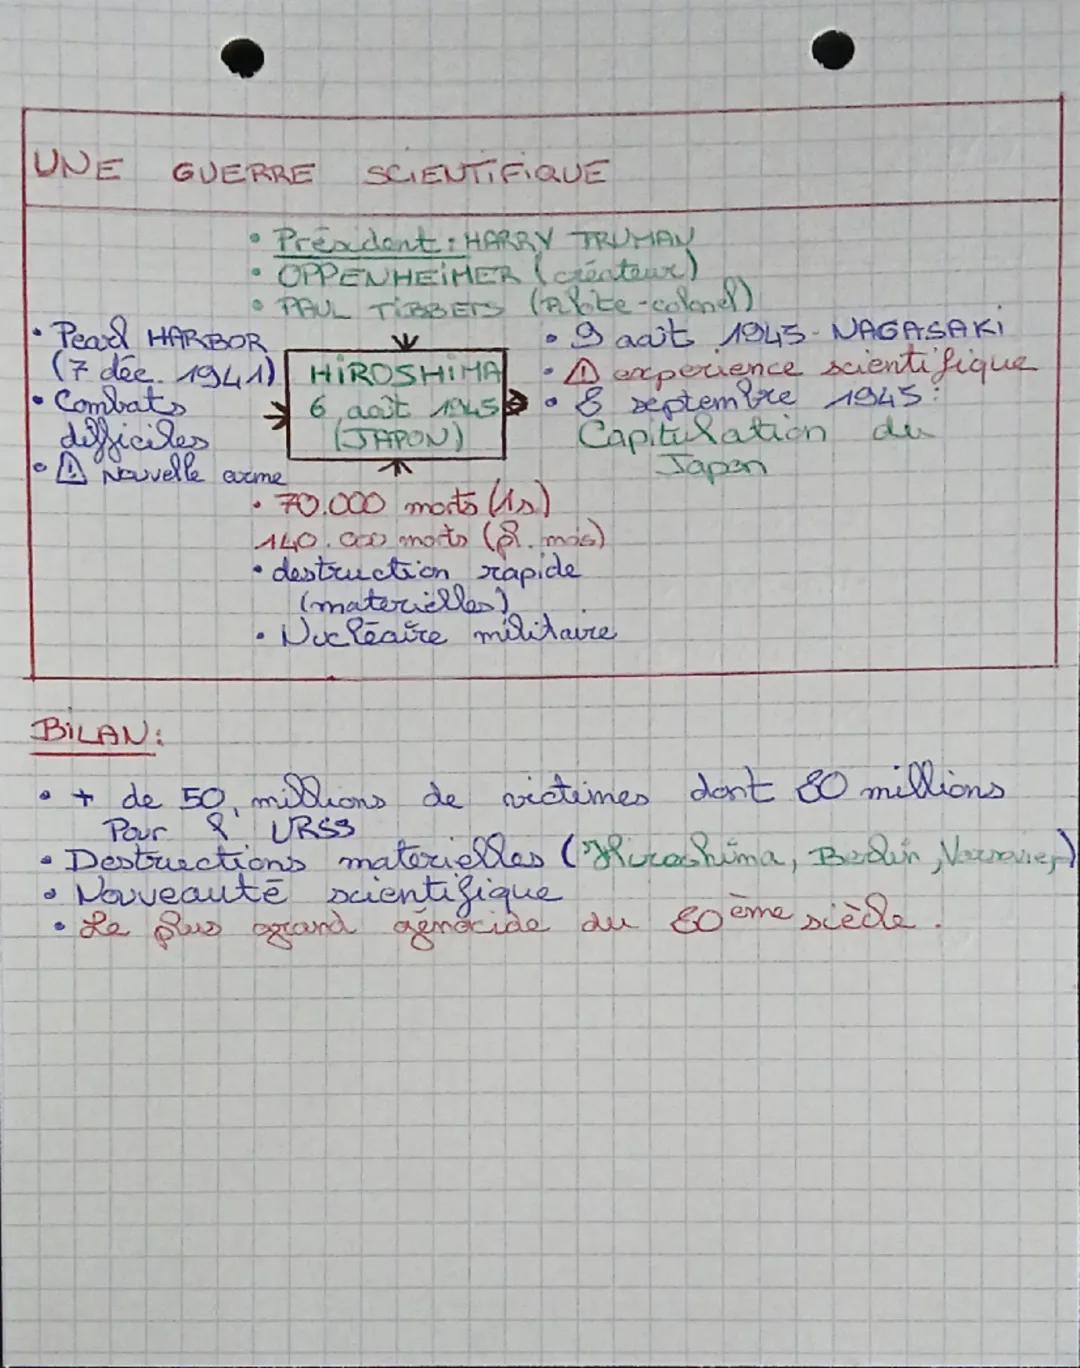 UNE GUERRE SCIENTIFIQUE
• Président : HARRY TRUMAN
• OPPENHEIMER (créateur)
• PAUL TIBBETS (Pilote-colonel)
• Pearl HARBOR
(7 déc. 1941)
• Combats
difficiles
• ⚠ Nouvelle arme
HIROSHIMA
6 août 1945
(JAPON)
• 9 août 1945 - NAGASAKI
• ⚠ expérience scientifique
• 2 septembre 1945 :
Capitulation du
Japon
• 70.000 morts (1s)
140.000 morts (pl. mois)
• destruction rapide
(materielles)
• Nucléaire militaire
BILAN :
• + de 50 millions de victimes dont 20 millions
Pour l'URSS
• Destructions materielles (Hiroshima, Berlin, Varsovie,)
• Nouveauté scientifique
• Le plus grand génocide du 20ème siècle.